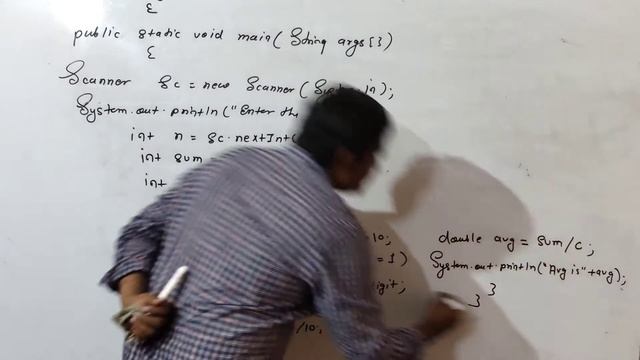 {
public static void main(String args[])
{
Scanner Sc = new Scanner(System.in);
System.out.println("Enter the
int n = Sc.nextInt(
int sum
int
10;
= 1)
digit;
/10;
double avg = sum/c;
System.out.println("Avg is"+avg);
}
}